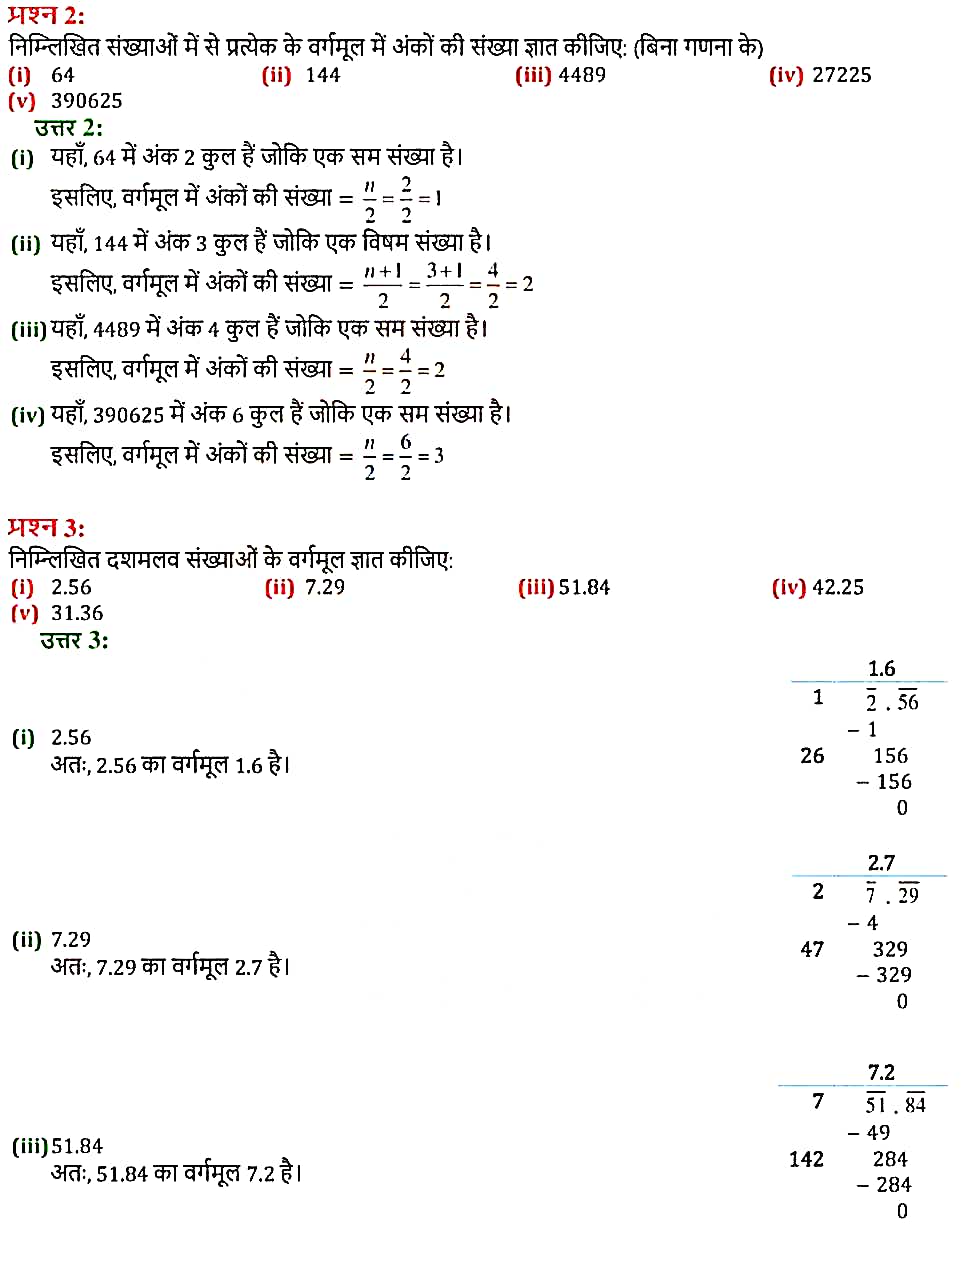 प्रश्न 2:
निम्लिखित संख्याओं में से प्रत्येक के वर्गमूल में अंकों की संख्या ज्ञात कीजिए: (बिना गणना के)
(i) 64 (ii) 144 (iii) 4489 (iv) 27225
(v) 390625
उत्तर 2:
(i) यहाँ, 64 में अंक 2 कुल हैं जोकि एक सम संख्या है।
इसलिए, वर्गमूल में अंकों की संख्या = n/2 = 2/2 = 1
(ii) यहाँ, 144 में अंक 3 कुल हैं जोकि एक विषम संख्या है।
इसलिए, वर्गमूल में अंकों की संख्या = n+1/2 = 3+1/2 = 4/2 = 2
(iii) यहाँ, 4489 में अंक 4 कुल हैं जोकि एक सम संख्या है।
इसलिए, वर्गमूल में अंकों की संख्या = n/2 = 4/2 = 2
(iv) यहाँ, 390625 में अंक 6 कुल हैं जोकि एक सम संख्या है।
इसलिए, वर्गमूल में अंकों की संख्या = n/2 = 6/2 = 3
प्रश्न 3:
निम्लिखित दशमलव संख्याओं के वर्गमूल ज्ञात कीजिए:
(i) 2.56 (ii) 7.29 (iii) 51.84 (iv) 42.25
(v) 31.36
उत्तर 3:
(i) 2.56
अतः, 2.56 का वर्गमूल 1.6 है।
1.6
1 2 . 56
– 1
26 156
– 156
0
(ii) 7.29
अतः, 7.29 का वर्गमूल 2.7 है।
2.7
2 7 . 29
– 4
47 329
– 329
0
(iii) 51.84
अतः, 51.84 का वर्गमूल 7.2 है।
7.2
7 51 . 84
– 49
142 284
– 284
0